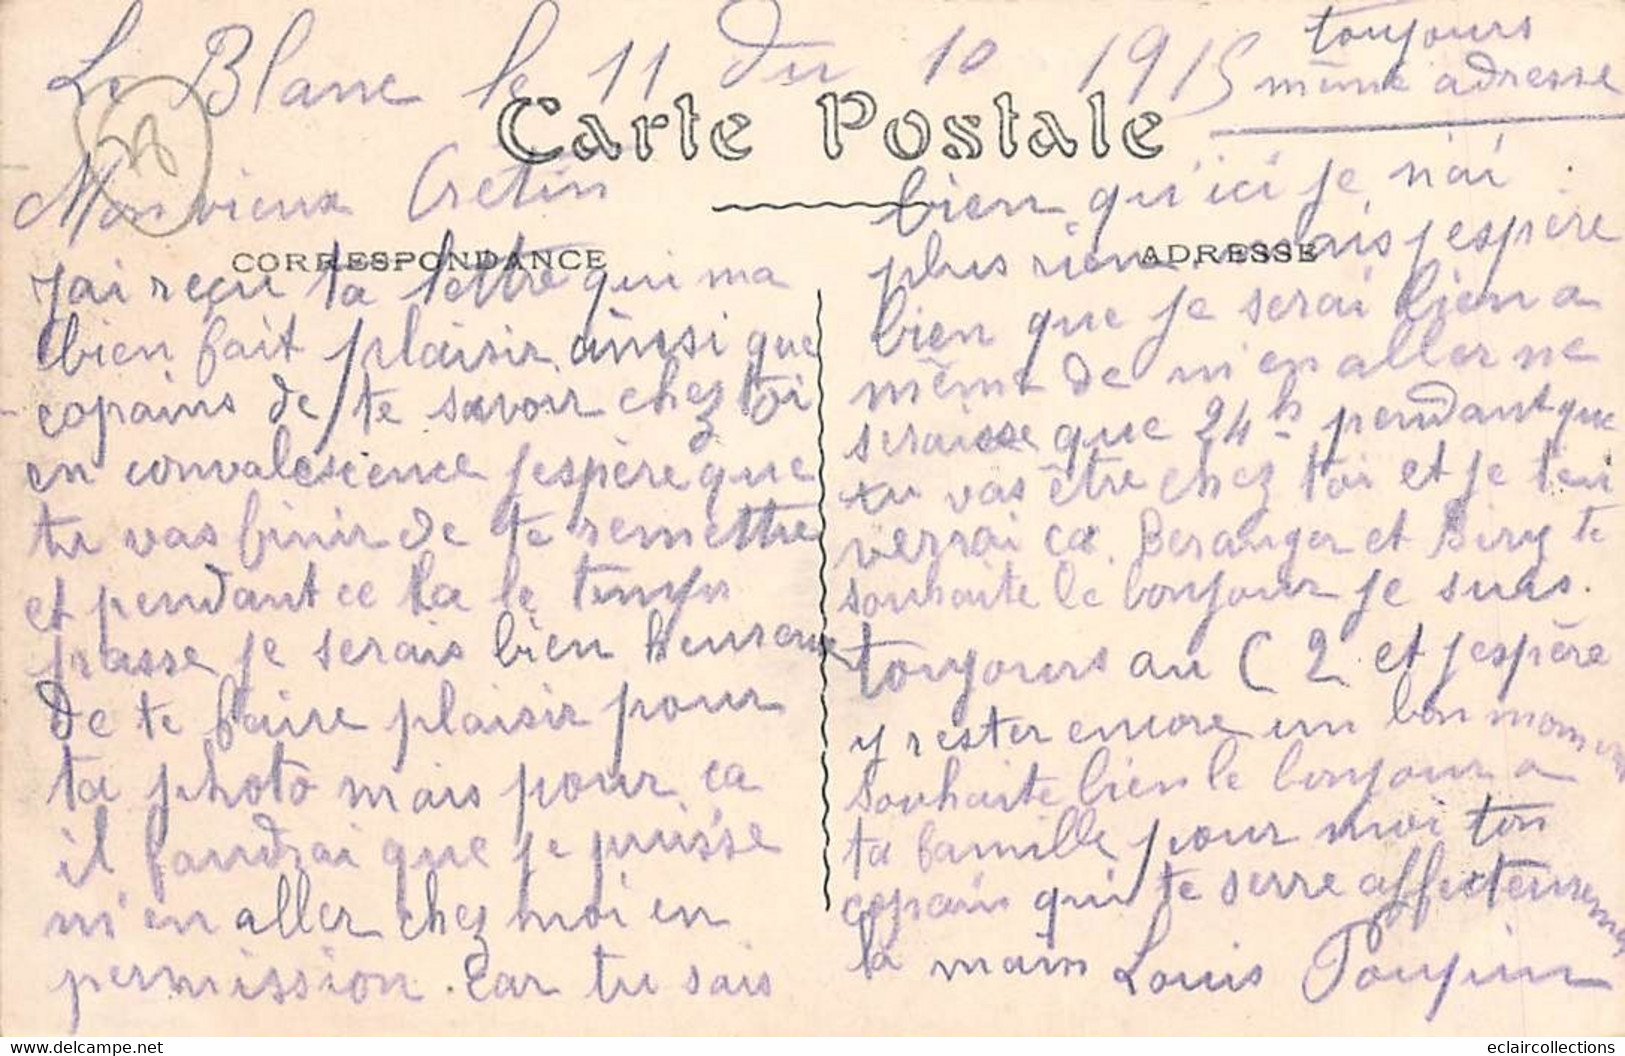 Le Blanc le 11 du 10 1915
toujours
même adresse
Carte Postale
Mon vieux Cretin
CORRESPONDANCE
j'ai reçu ta lettre qui ma
bien fait plaisir ainsi que
copains de te savoir chez toi
en convalescience j'espère que
tu vas finir de te remettre
et pendant ce la le temps
passe je serais bien heureux
de te faire plaisir pour
ta photo mais pour ca
il faudrai que je puisse
m'en aller chez moi en
permission. Car tu sais
ADRESSE
bien qu'ici je n'ai
plus rien mais j'espère
bien que je serai bien a
même de m'en aller ne
seraisse que 24h pendant que
tu vas être chez toi et je t'en
verrai ca. Beranger et Biry te
souhaite le bonjour je suis
toujours au C 2 et j'espère
y rester encore un bon moment
souhaite bien le bonjour a
ta famille pour moi ton
copain qui te serre affecteusement
la main Louis Poujin
www.delcampe.net
eclaircollections